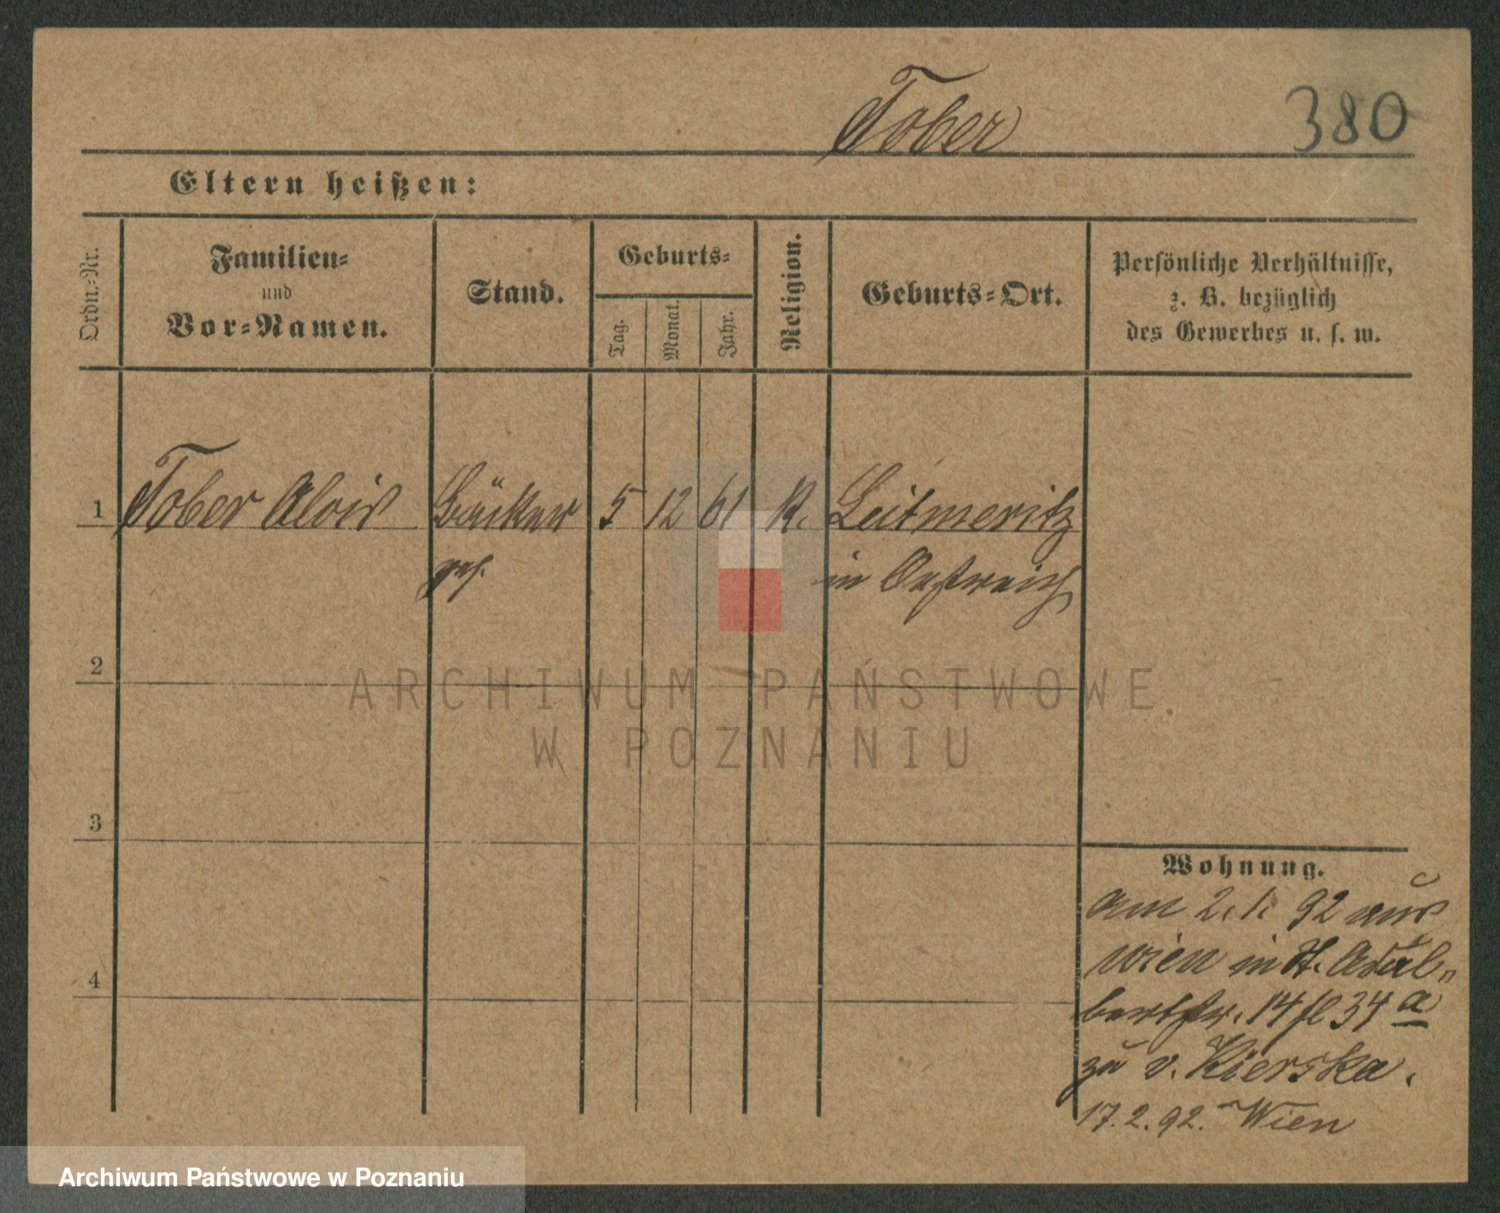 Tober
380
Eltern heißen:
Ordn.-Nr.
Familien-
und
Vor-Namen.
Stand.
Geburts-
Tag.
Monat.
Jahr.
Religion.
Geburts-Ort.
Persönliche Verhältnisse,
z. B. bezüglich
des Gewerbes u. s. w.
1 Tober Alois Bäcker 5 12 61 K. Leitmeritz
in Oestreich
2
3
4
Wohnung.
am 2. 1. 92 aus
Wien in St. Adal-
bertstr. 14 fl 34 a
zu v. Kierska.
17. 2. 92. Wien
ARCHIWUM PAŃSTWOWE
W POZNANIU
Archiwum Państwowe w Poznaniu